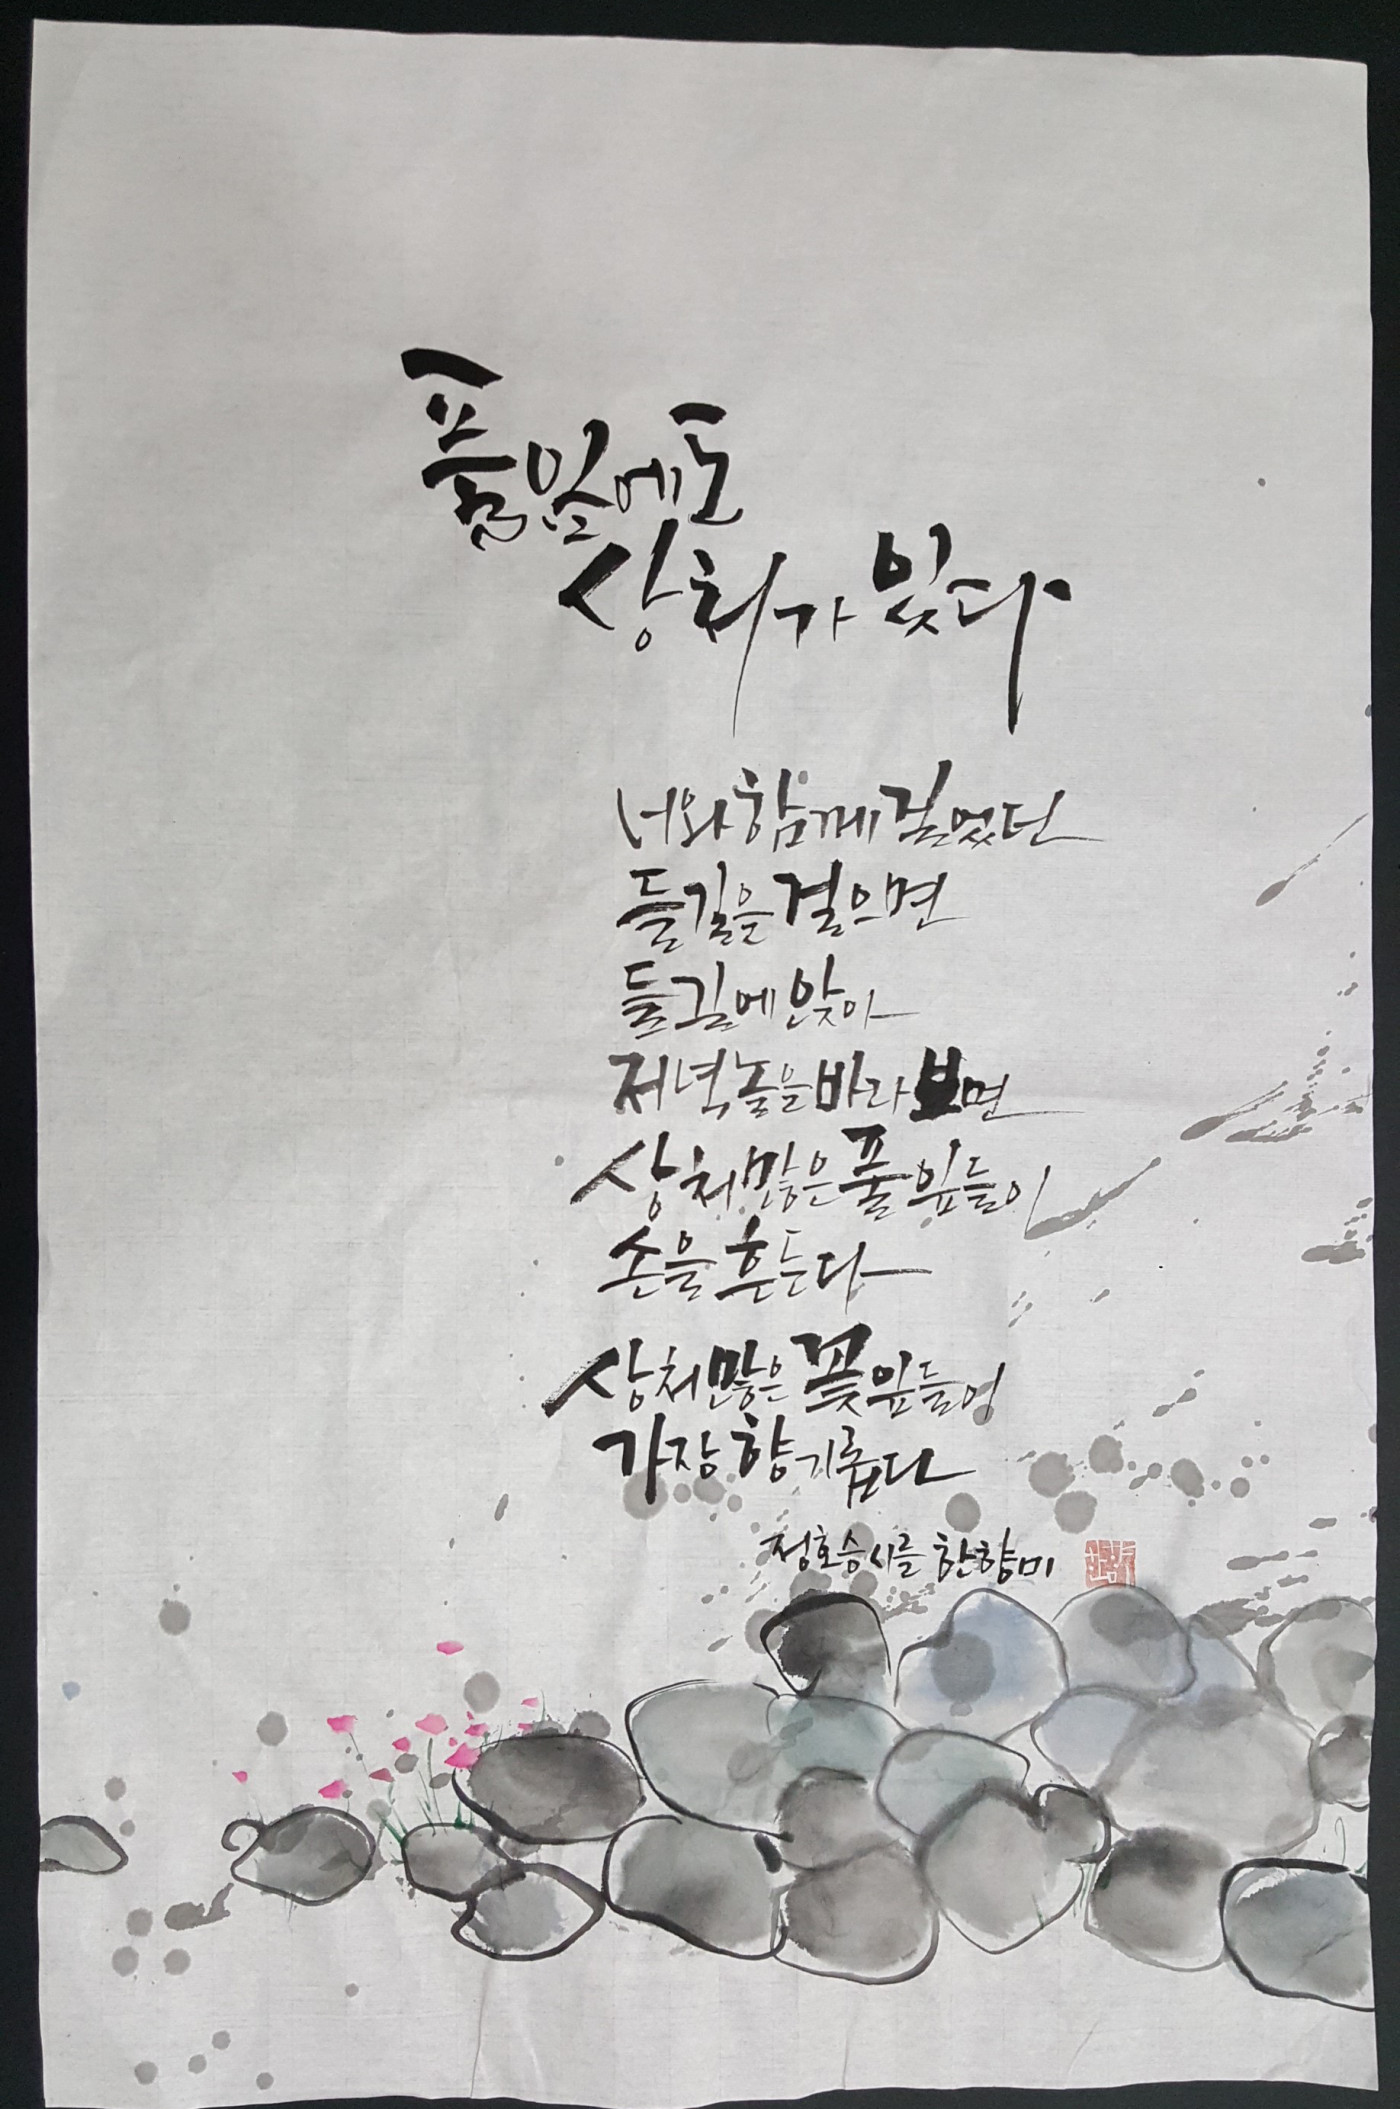 풀잎에도
상처가 있다
너와 함께 걸었던
들길을 걸으면
들길에 앉아
저녁놀을 바라보면
상처 많은 풀잎들이
손을 흔든다
상처 많은 꽃잎들이
가장 향기롭다
정호승 시를 한향미